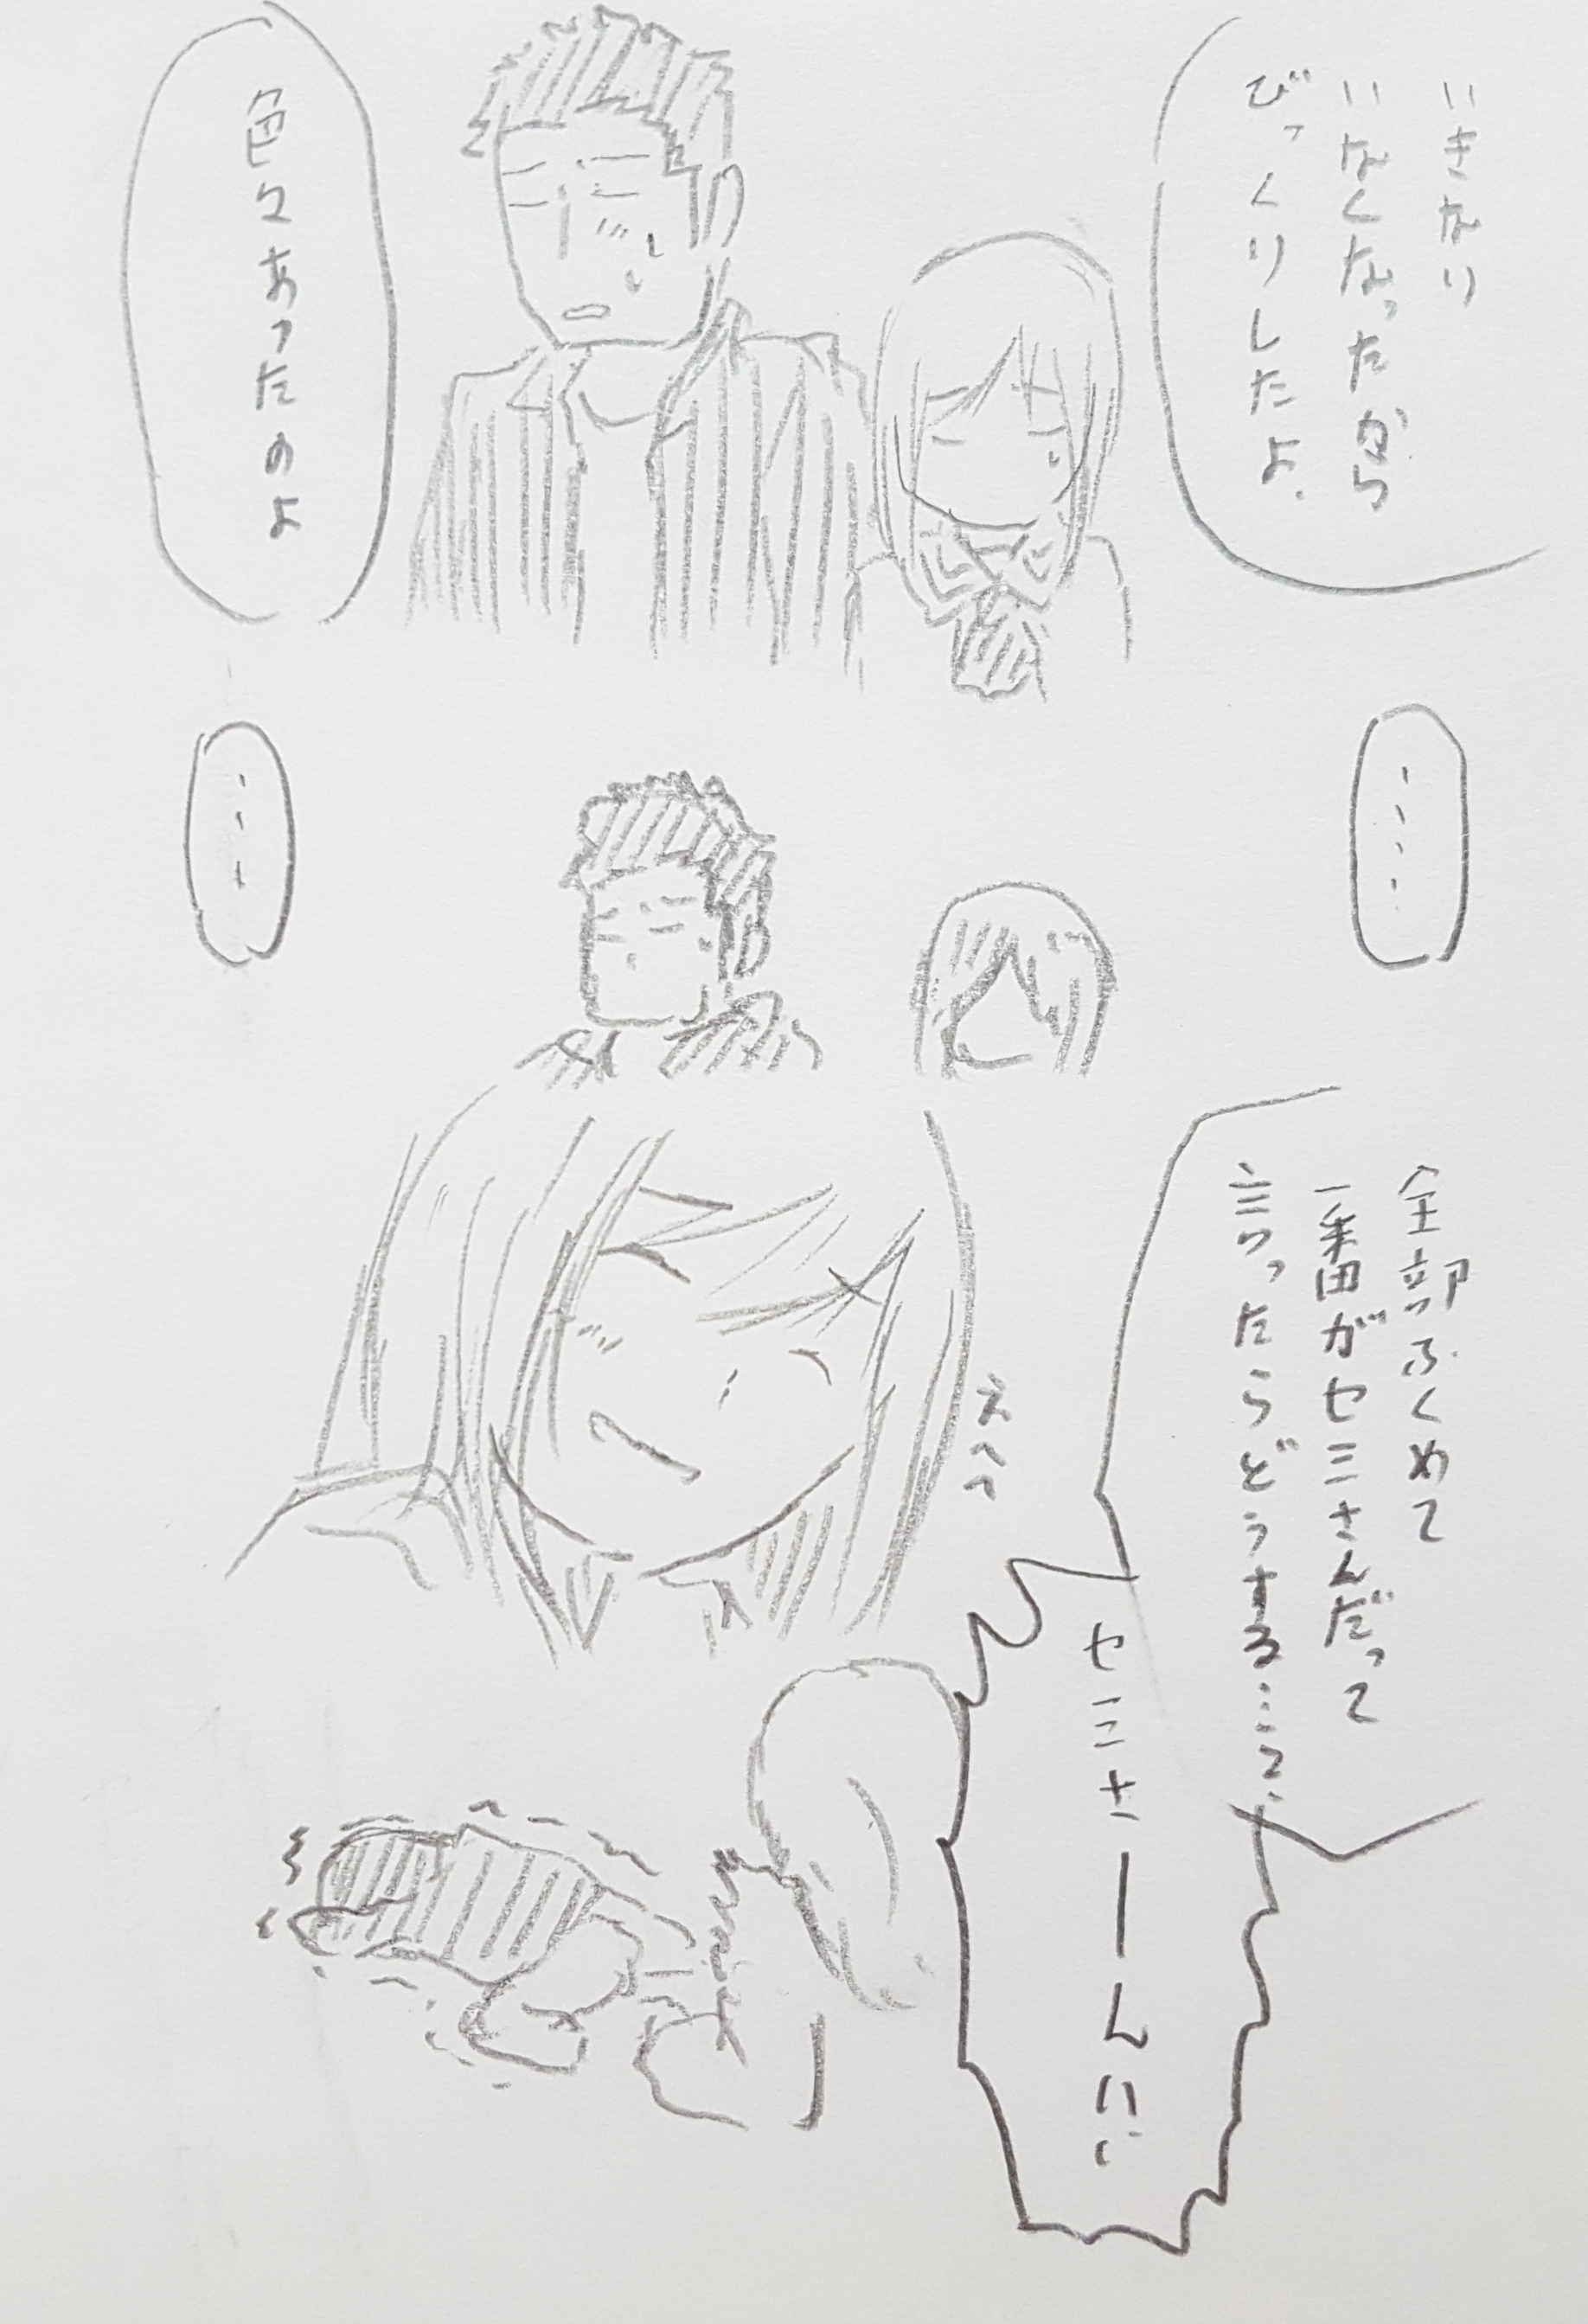 いきなり
いなくなったから
びっくりしたよ.
色々あったのよ
....
...
全部っふくめて
一番がセミさんだって
言ったらどうする...?
えへっ
セミさーんにぃ